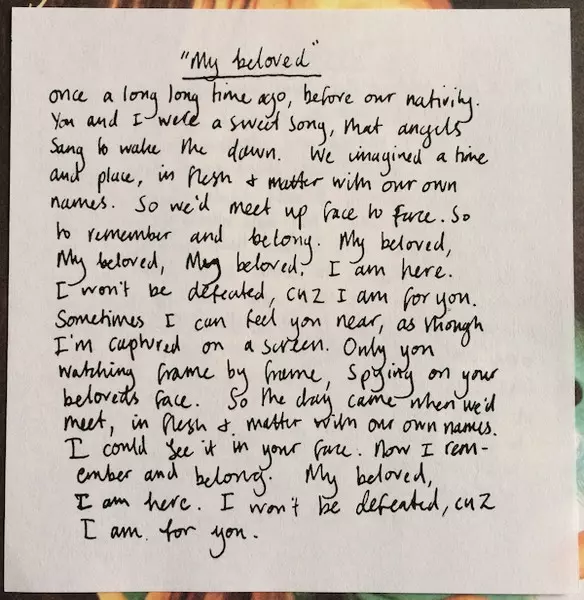 "My beloved"
once a long long time ago, before our nativity.
You and I were a sweet song, that angels
Sang to wake the dawn. We imagined a time
and place, in flesh & matter with our own
names. So we'd meet up face to face. So
to remember and belong. My beloved,
My beloved, My beloved, I am here.
I won't be defeated, cuz I am for you.
Sometimes I can feel you near, as though
I'm captured on a screen. Only you
watching frame by frame, Spying on your
beloveds face. So the day came when we'd
meet, in flesh & matter with our own names.
I could see it in your face. Now I rem-
ember and belong. My beloved,
I am here. I won't be defeated, cuz
I am for you.